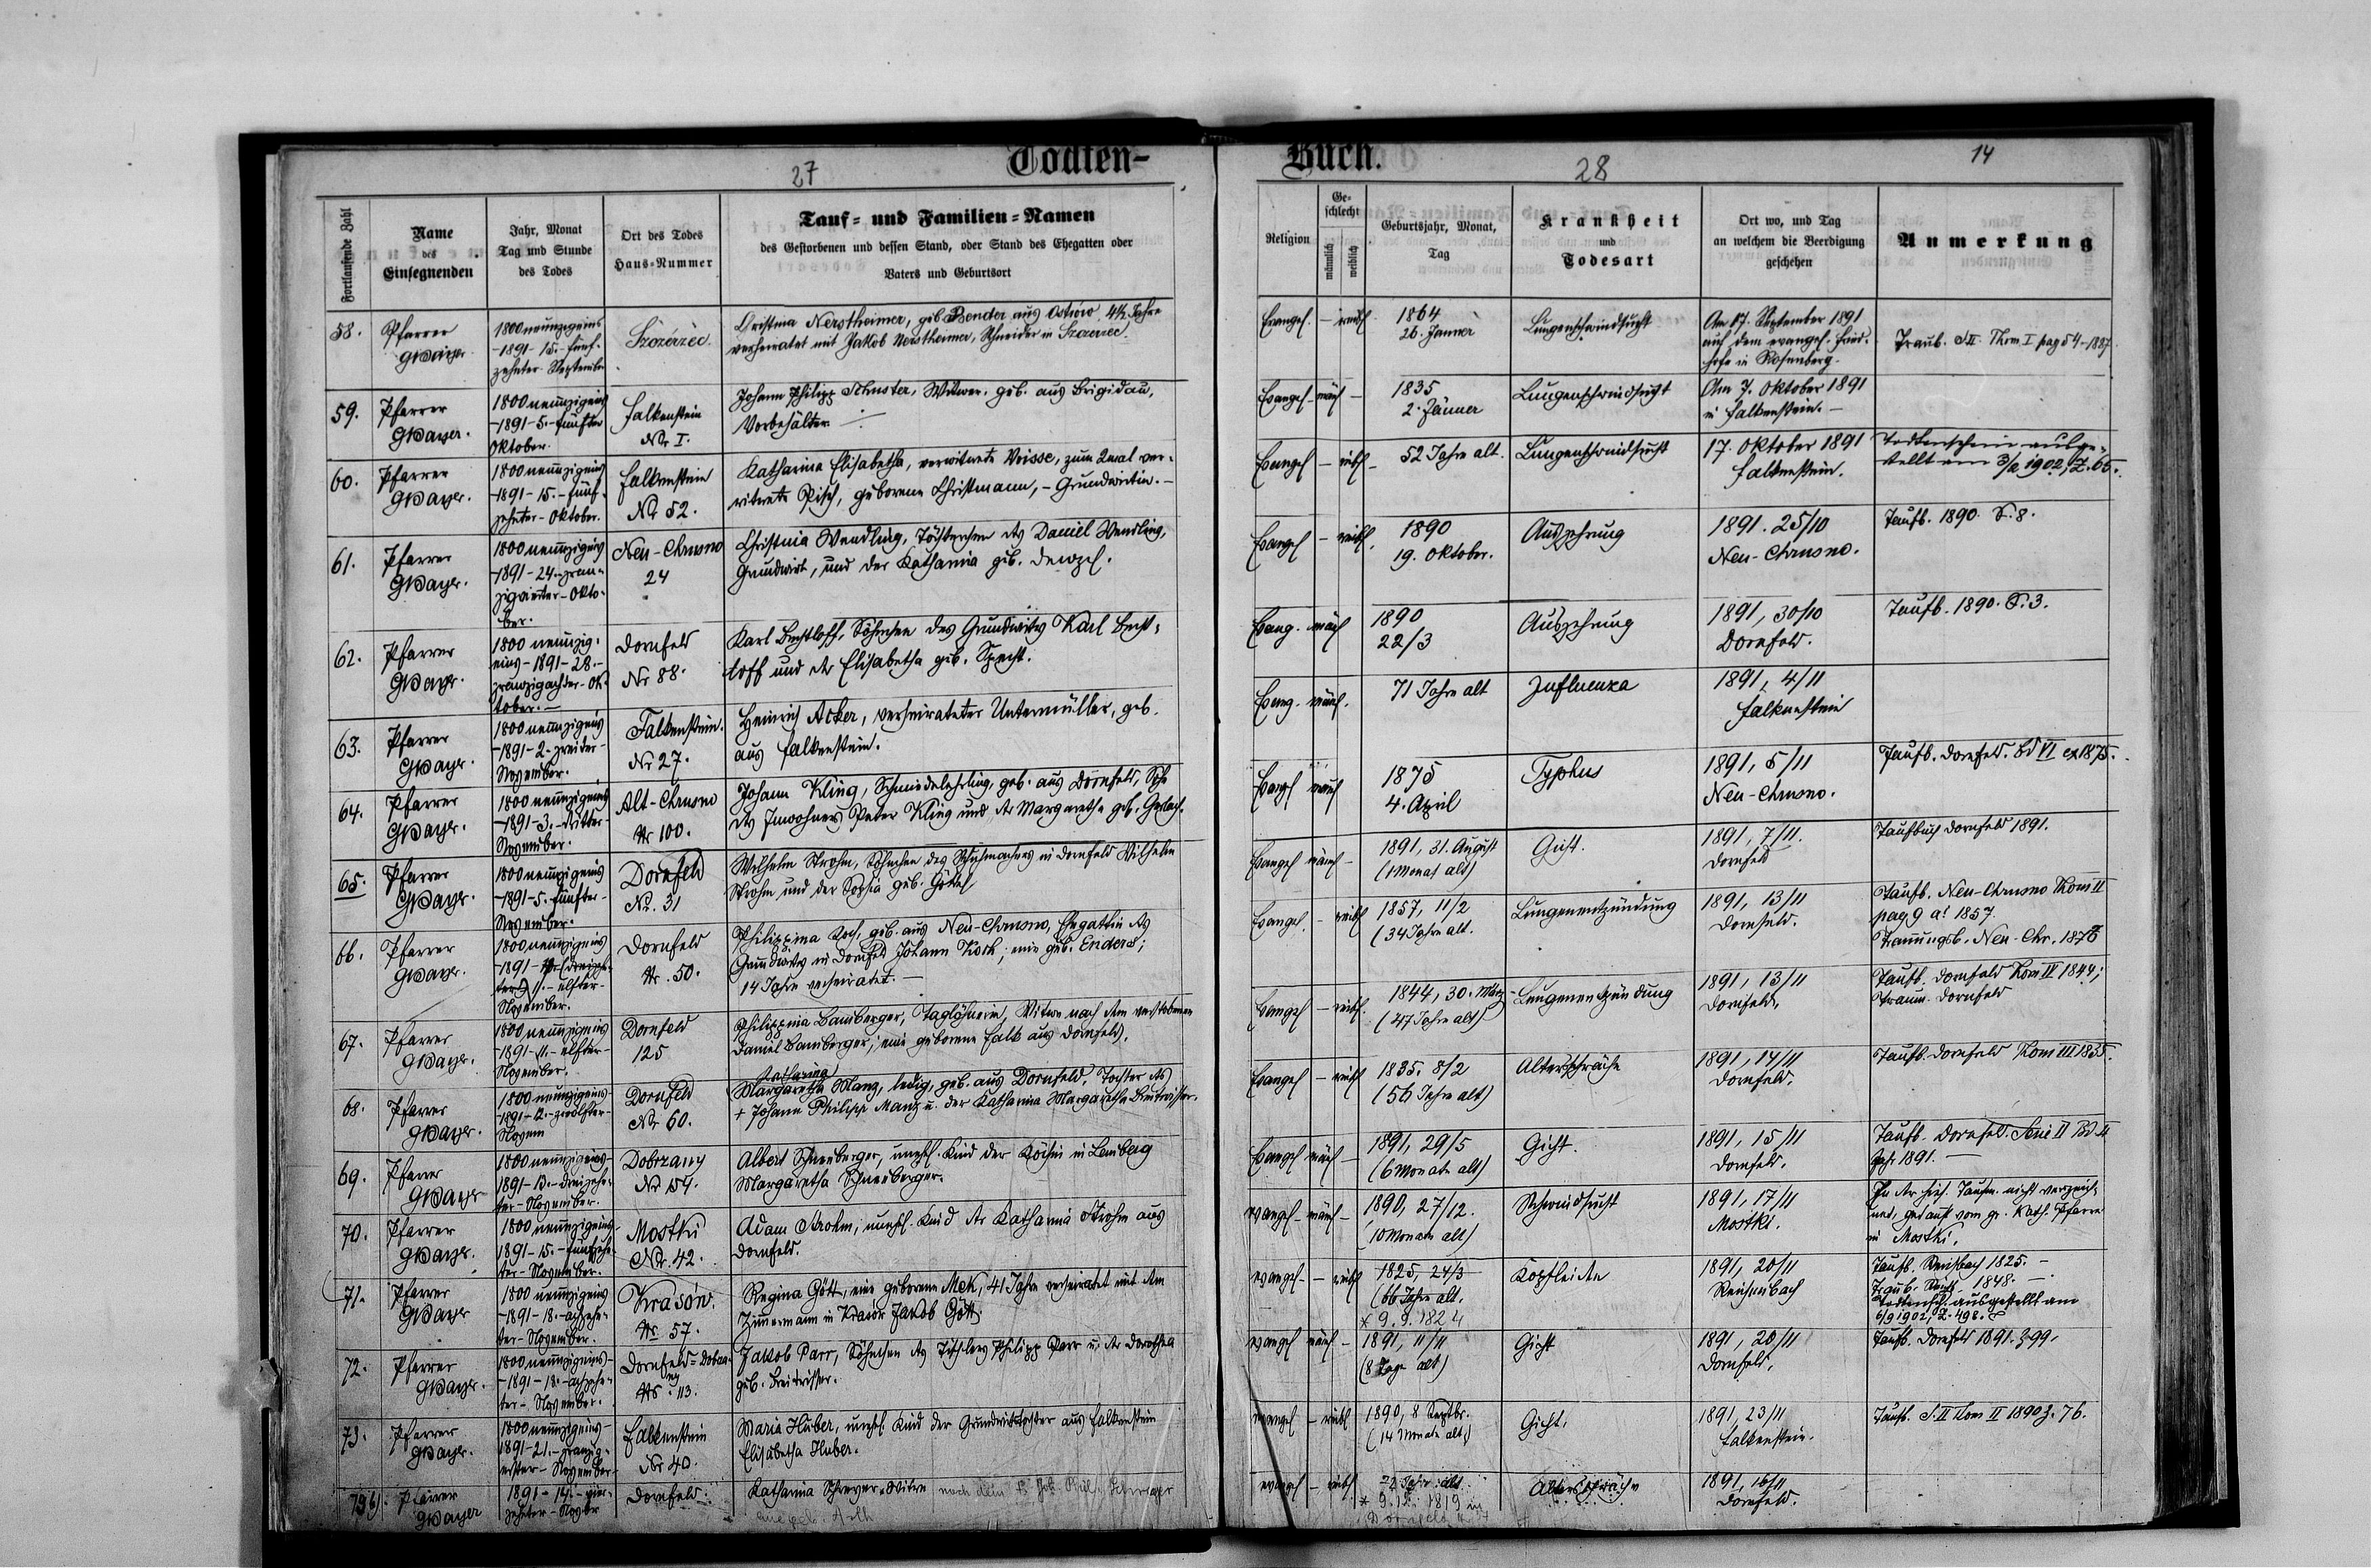 Todten-
Buch.
27
28
14
Fortlaufende Zahl
Name
des
Einsegnenden
Jahr, Monat
Tag und Stunde
des Todes
Ort des Todes
Haus-Nummer
Tauf- und Familien-Namen
des Gestorbenen und dessen Stand, oder Stand des Ehegatten oder
Vaters und Geburtsort
Religion
Ge-
schlecht
männlich
weiblich
Geburtsjahr, Monat,
Tag
Krankheit
und
Todesart
Ort wo, und Tag
an welchem die Beerdigung
geschehen
Anmerkung
58.
Pfarrer
1800 neunzigeins
-1891- 15.- fünf-
zehnter September
Szczerzec
Christina Nerstheimer, geb. Bender aus Ostrów 4½ Jahre
verheiratet mit Jakob Nerstheimer, Schneider in Szczerzec.
Evangel. – weibl.
1864
26. Jänner
Lungenschwindsucht
Am 17. September 1891
auf dem evangel. Fried-
hofe in Rosenberg.
Traub. S.II. Thom. I pag 54-1887.
59.
Pfarrer
1800 neunzigeins
-1891-5.-fünfter
Oktober.
Falkenstein
Nr. I.
Johann Philipp Schuster, Witwer, geb. aus Brigidau,
Vorbehälter
Evangel – männl –
1835
2. Jänner
Lungenschwindsucht
Am 7. Oktober 1891
in Falkenstein. –
60.
Pfarrer
1800 neunzigeins
-1891-15.-fünf-
zehnter-Oktober.
Falkenstein
Nr 52.
Katharina Elisabetha, verwitwete Voisse, zum 2mal ver-
witwete Pisch, geborene Christmann, - Grundwirtin. -
Evangel – weibl –
52 Jahre alt.
Lungenschwindsucht
17. Oktober 1891
Falkenstein.
Todtenschein ausge-
stellt am 3/2 1902, Z. 65.
61.
Pfarrer
1800 neunzigeins
-1891-24.-zwan-
zigvierter-Okto-
ber.
Neu-Chrusno
24
Christina Wendling, Töchterchen des Daniel Wendling,
Grundwirt, und der Katharina geb.
Evangel – weibl.
1890
19. Oktober.
Auszehrung
1891. 25/10
Neu-Chrusno.
Taufb. 1890. S. 8.
62.
Pfarrer
1800 neunzig-
eins-1891-28.-
zwanzigachter-Ok-
tober.-
Dornfeld
Nr 88.
Karl Bechtloff, Söhnchen des Grundwirts Karl Becht-
loff und der Elisabetha geb. Specht.
Evang. männl
1890
22/3
Auszehrung
1891, 30/10
Dornfeld.
Taufb. 1890. S. 3.
63.
Pfarrer
1800 neunzigeins
-1891-2.-zweiter-
November.
Falkenstein.
Nr 27.
Heinrich Acker, verheirateter Untermüller, geb.
aus Falkenstein.
Evang. männl.
71 Jahre alt
Influenza
1891, 4/11
Falkenstein
64.
Pfarrer
1800 neunzigeins
-1891-3.-dritter-
November.
Alt-Chrusno
Nr 100.
Johann Kling, Schmiedelehrling, geb. aus Dornfeld, Sohn
des Inwohners Peter Kling und der Margaretha geb. Gerlach.
Evangl männl
1875
4. April
Typhus
1891, 5/11
Neu-Chrusno.
Taufb. Dornfeld. Bd VI ex 1875.
65.
Pfarrer
1800 neunzigeins
-1891-5.-fünfter-
November.
Dornfeld
Nr. 31
Wilhelm Strohm, Söhnchen des Schuhmachers in Dornfeld Wilhelm
Strohm und der Sophia geb.
Evangel männl –
1891, 31. August
(1 Monat alt)
Gicht.
1891, 7/11.
Dornfeld
Taufbuch Dornfeld 1891.
66.
Pfarrer
1800 neunzigeins
11.-elfter-
November.
Dornfeld
Nr. 50.
Philippina Koch, geb. aus Neu-Chrusno, Ehegattin des
Grundwirts in Dornfeld Johann Koch; eine geb. Enders;
14 Jahre verheiratet. –
Evangel. – weibl
1857, 11/2
(34 Jahre alt.
Lungenentzündung
1891, 13/11
Dornfeld.
Taufb. Neu-Chrusno Thom II
pag 9 a! 1857.
Trauungsb. Neu-Chr. 1878
67.
Pfarrer
1800 neunzigeins
-1891-11.-elfter-
November.
Dornfeld
125
Philippina Bamberger, Taglöhnerin, Witwe nach dem verstorbenen
Daniel Bamberger, eine geborene Falk aus Dornfeld.
Evangel – weibl.
1844, 30. März
(47 Jahre alt)
Lungenentzündung
1891, 13/11
Dornfeld.
Taufb. Dornfeld Thom IV 1844;
Traun. Dornfeld
68.
Pfarrer
1800 neunzigeins-
-1891-12.-zwölfter-
Novem
Dornfeld
Nr 60.
Katharina
Margaretha Manz, ledig, geb. aus Dornfeld, Tochter des
+ Johann Philipp Manz u. der Katharina Margaretha
Evangel – weibl
1835. 8/2
(56 Jahre alt)
Altersschwäche
1891, 14/11
Dornfeld.
Taufb. Dornfeld Thom III 1835.
69.
Pfarrer
1800 neunzigeins-
1891-13.-dreizehn-
ter-November.
Dobrzany
Nr 154.
Albert Schneeberger, unehl. Kind der Köchin in Lemberg
Margaretha Schneeberger.
Evangel männl –
1891, 29/5
(6 Monate alt)
Gicht.
1891, 15/11
Dornfeld.
Taufb. Dornfeld. Serie II Bd II
Jahr 1891. –
70.
Pfarrer
1800 neunzigeins-
1891-15.-fünfzehn-
ter-November.
Mostki
Nr. 42.
Adam Strohm, unehl. Kind der Katharina Strohm aus
Dornfeld.
evangel – männl –
1890, 27/12.
(10 Monate alt)
Schwindsucht
1891, 17/11
Mostki.
In der hies. Taufm. nicht verzeich-
net, getauft vom gr. Kath. Pfarrer
in Mostki.
71.
Pfarrer
1800 neunzigeins
-1891-18.-achtzehn-
ter-November.
Krasów.
Nr. 57.
Regina Gött, eine geborene Mek, 41 Jahre verheiratet mit dem
Zimmermann in Krasów Jakob Gött.
evangel – – weibl
1825, 24/3
(66 Jahre alt.
* 9.9.1824
Kopfleiden
1891, 20/11
Reichenbach
Taufb. Reichbach 1825. –
1848. –
Todtensch. ausgestellt am
6/9 1902, Z. 498.
72.
Pfarrer
1800 neunzigeins-
-1891-18.-achtzehn-
ter-November.
Nr. 113.
Jakob Parr, Söhnchen des Tischlers Philipp Parr u. der Dorothea
geb.
evangel männl –
1891, 11/11
(8 Tage alt)
Gicht
1891, 20/11
Dornfeld.
Taufb. Dornfeld 1891. Z 99.
73.
Pfarrer
1800 neunzigeins-
1891-21.-zwanzig-
erster-November-
Falkenstein
Nr 40.
Maria Huber, unehl. Kind der Grundwirtstochter aus Falkenstein
Elisabetha Huber.
evangel – weibl
1890, 8 Septbr.
(14 Monate alt.)
Gicht.
1891, 23/11
Falkenstein.
Taufb. S. II Thom II 1890 Z. 76.
Pfarrer
1891-14.-vier-
zehnter-Novbr
Dornfeld.
Katharina Schreyer-Witwe nach dem Schreyer
eine geb.
evangel – weibl
72 Jahre alt.
1819 in
Dornfeld
Altersschwäche
1891, 16/11
Dornfeld.